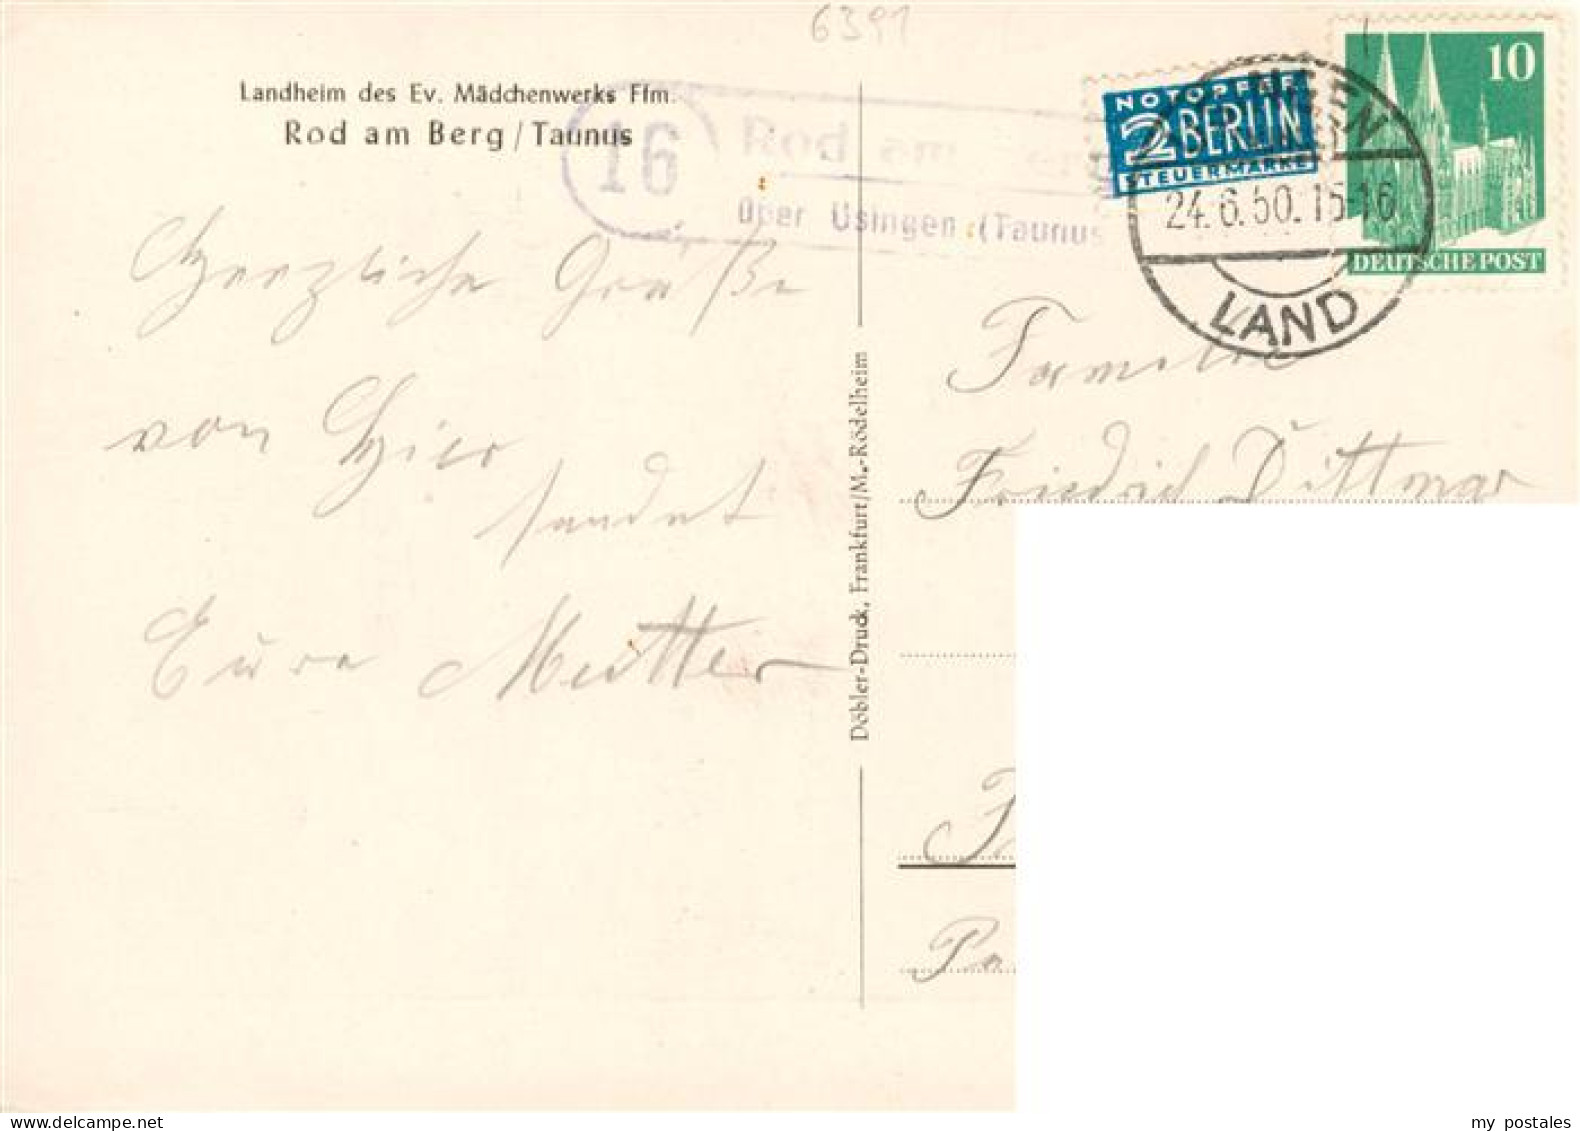 6391
Landheim des Ev. Mädchenwerks Ffm.
Rod am Berg / Taunus
16
Rod am Ber
über Usingen (Taunus
NOTOPFER
2 BERLIN
STEUERMARKE
10
DEUTSCHE POST
24.6.50.15-16
LAND
Herzliche Grüße
von Hier
sendet
Eure Mutter
Döbler-Druck, Frankfurt/M.-Rödelheim
Familie
Friedrich Dittmar
my postales